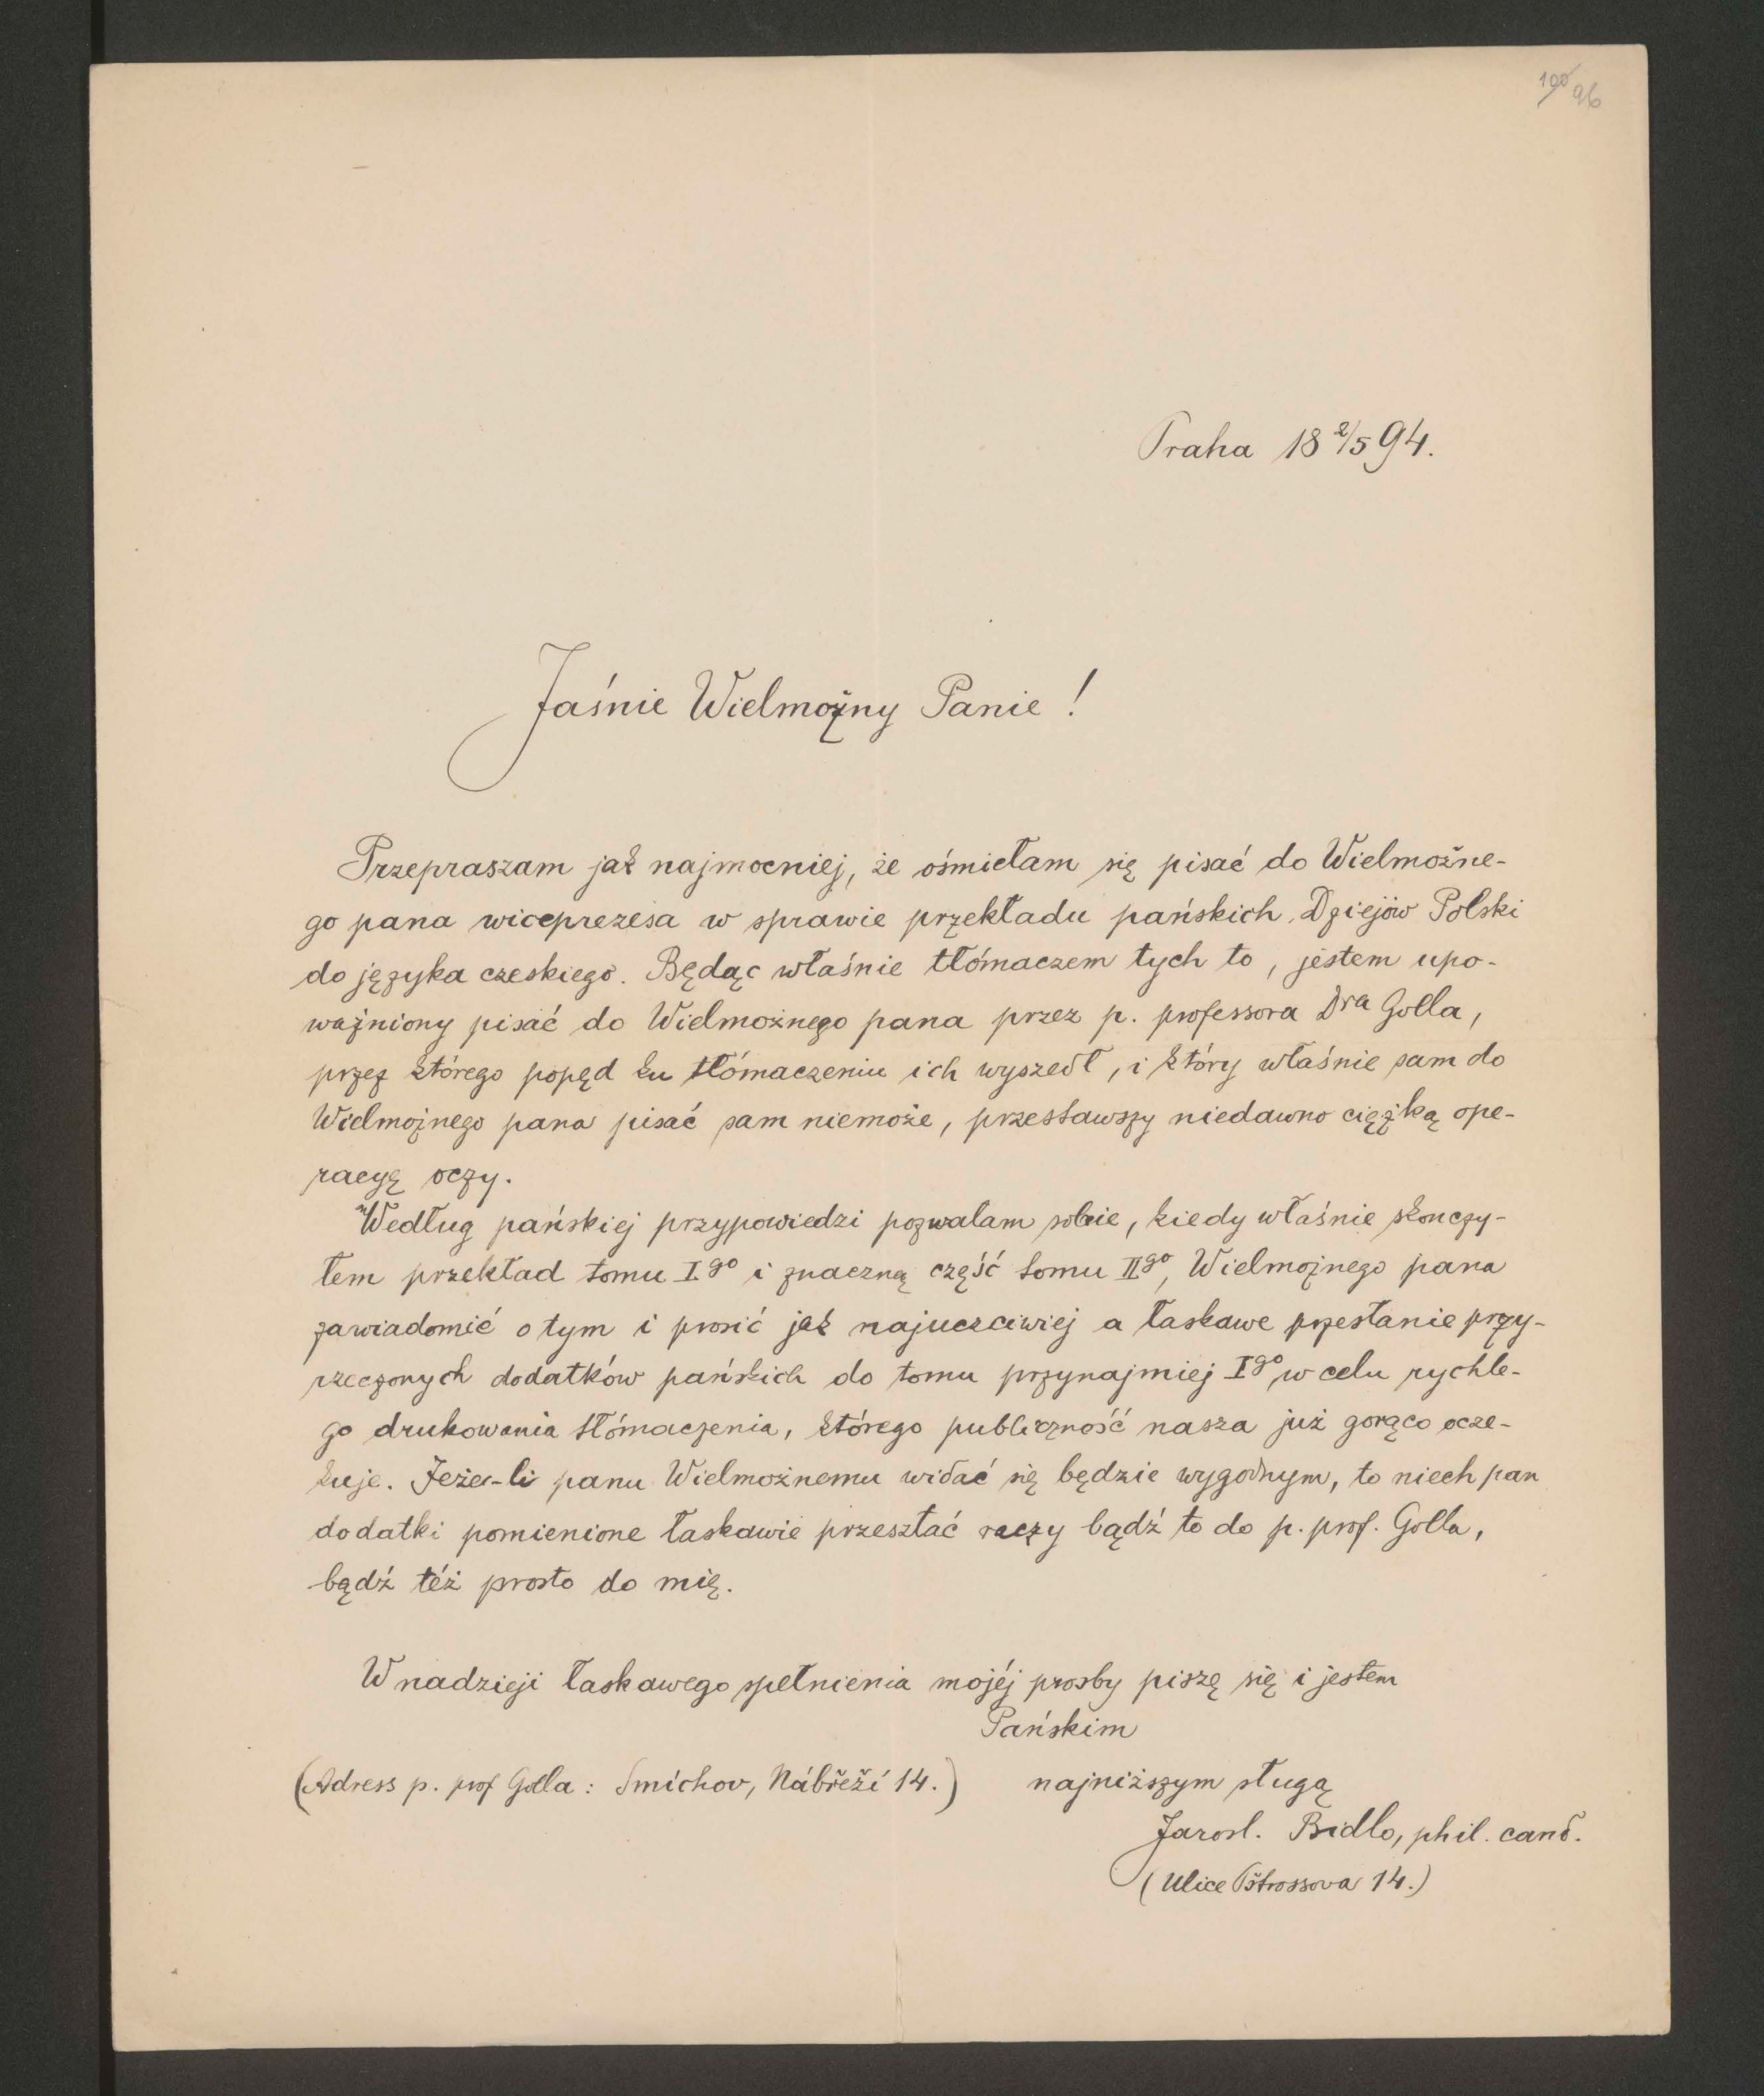 100 96
Praha 18 2/5 94.
Jaśnie Wielmożny Panie!
Przepraszam jak najmocniej, że ośmiełam się pisać do Wielmożne-
go pana wiceprezesa w sprawie przekładu pańskich Dziejów Polski
do języka czeskiego. Będąc właśnie tłómaczem tych to, jestem upo-
ważniony pisać do Wielmożnego pana przez p. professora Dra Golla,
przez którego popęd ku tłómaczeniu ich wyszedł, i który właśnie sam do
Wielmożnego pana pisać sam niemoże, przestawszy niedawno ciężką ope-
racyę oczy.
Według pańskiej przypowiedzi pozwalam sobie, kiedy właśnie skonczy-
łem przekład tomu I.go i znaczną część tomu IIgo, Wielmożnego pana
zawiadomić o tym i prosić jak najuczciwiej a łaskawe przesłanie przy-
rzeczonych dodatków pańskich do tomu przynajmiej Igo w celu rychle-
go drukowania tłómaczenia, którego publiczność nasza już gorąco ocze-
kuje. Jeże-li panu Wielmożnemu widać się będzie wygodnym, to niech pan
dodatki pomienione łaskawie przesztać raczy bądź to do p. prof. Golla,
bądź też prosto do mię.
W nadzieji łaskawego spełnienia mojéj prosby piszę się i jestem
Pańskim
(Adress p. prof Golla: Smíchov, Nábřeží 14.) najniższym sługą
Jarosl. Bidlo, phil. cand.
(Ulice Pštrossova 14.)